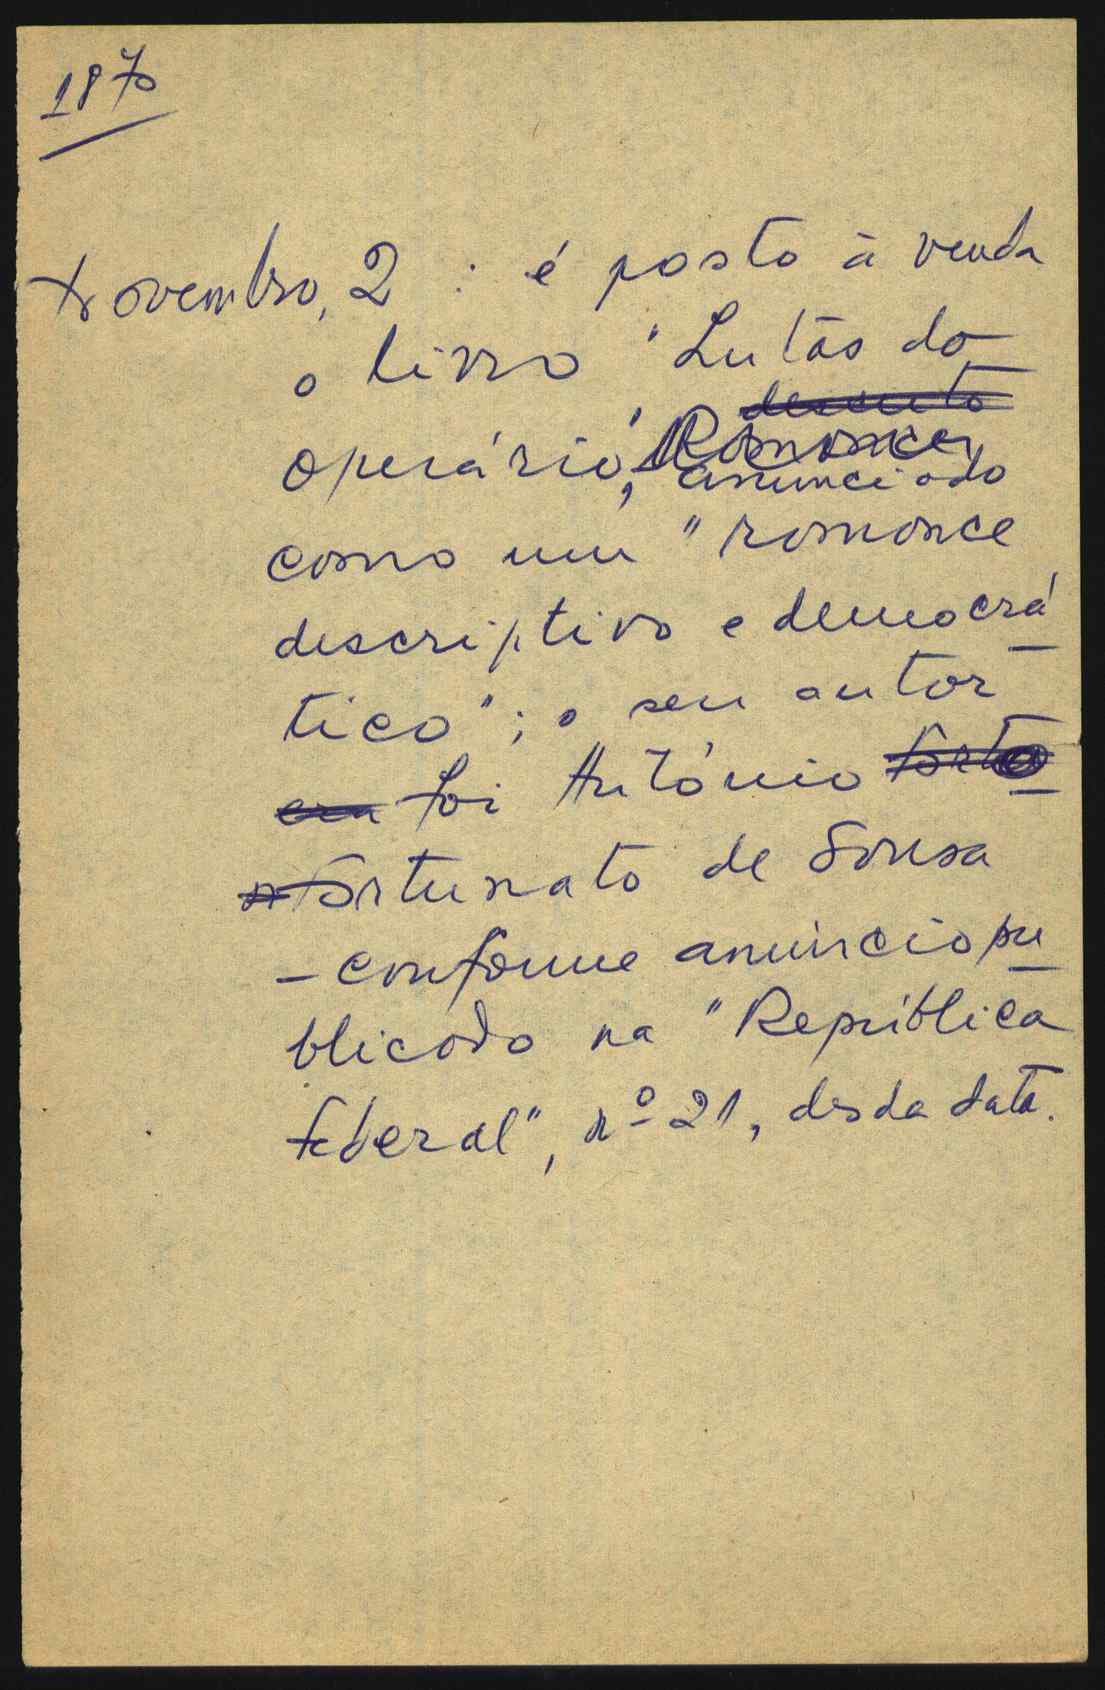 1870
Novembro, 2 : é posto à venda
o livro "Lutas do
operário", anunciado
como um "romance
descriptivo e democrá-
tico"; o seu autor
foi António
Fortunato de Sousa
- conforme anúncio pu-
blicado na "República
federal", nº 21, desda data.